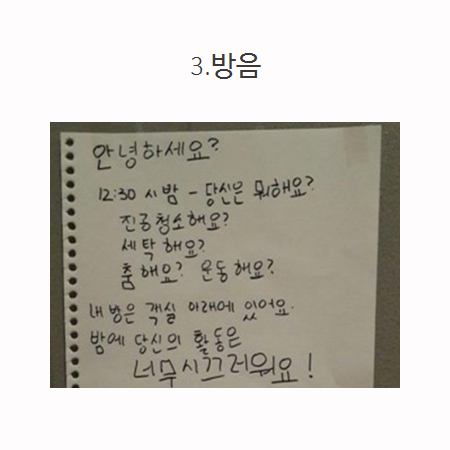 3.방음
안녕하세요?
12:30 시 밤 - 당신은 뭐해요?
진공청소해요?
세탁해요?
춤해요? 운동해요?
내 방은 객실 아래에 있어요.
밤에 당신의 활동은
너무시끄러워요!